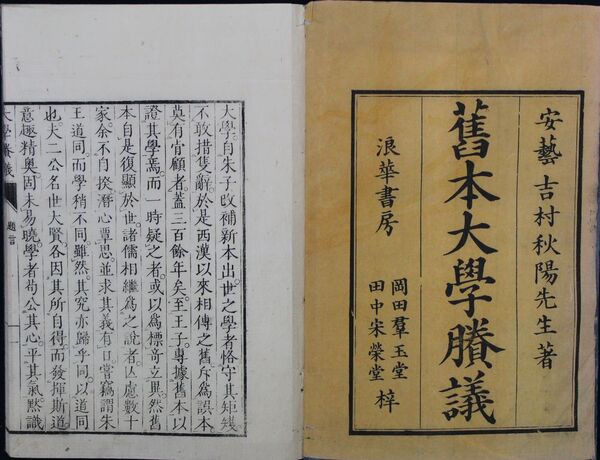 安藝 吉村秋陽先生著
舊本大學賸議
浪華書房
岡田羣玉堂
田中宋榮堂
梓
大學自朱子改補新本出世之學者恪守其矩矱
不敢措隻辭於是西漢以來相傳之舊斥為誤本
莫有肯顧者蓋三百餘年矣至王子專據舊本以
證其學焉而一時疑之者或以為標奇立異然舊
本自是復顯於世諸儒相繼為之說者亡慮數十
家余不自揆潛心覃思並求其義有日嘗竊謂朱
王道同而學稍不同雖然其究亦歸乎同以道同
也夫二公名世大賢各因其所自得而發揮斯道
意趣精奧固未易曉學者苟公其心平其氣默識
大學賸議
題言